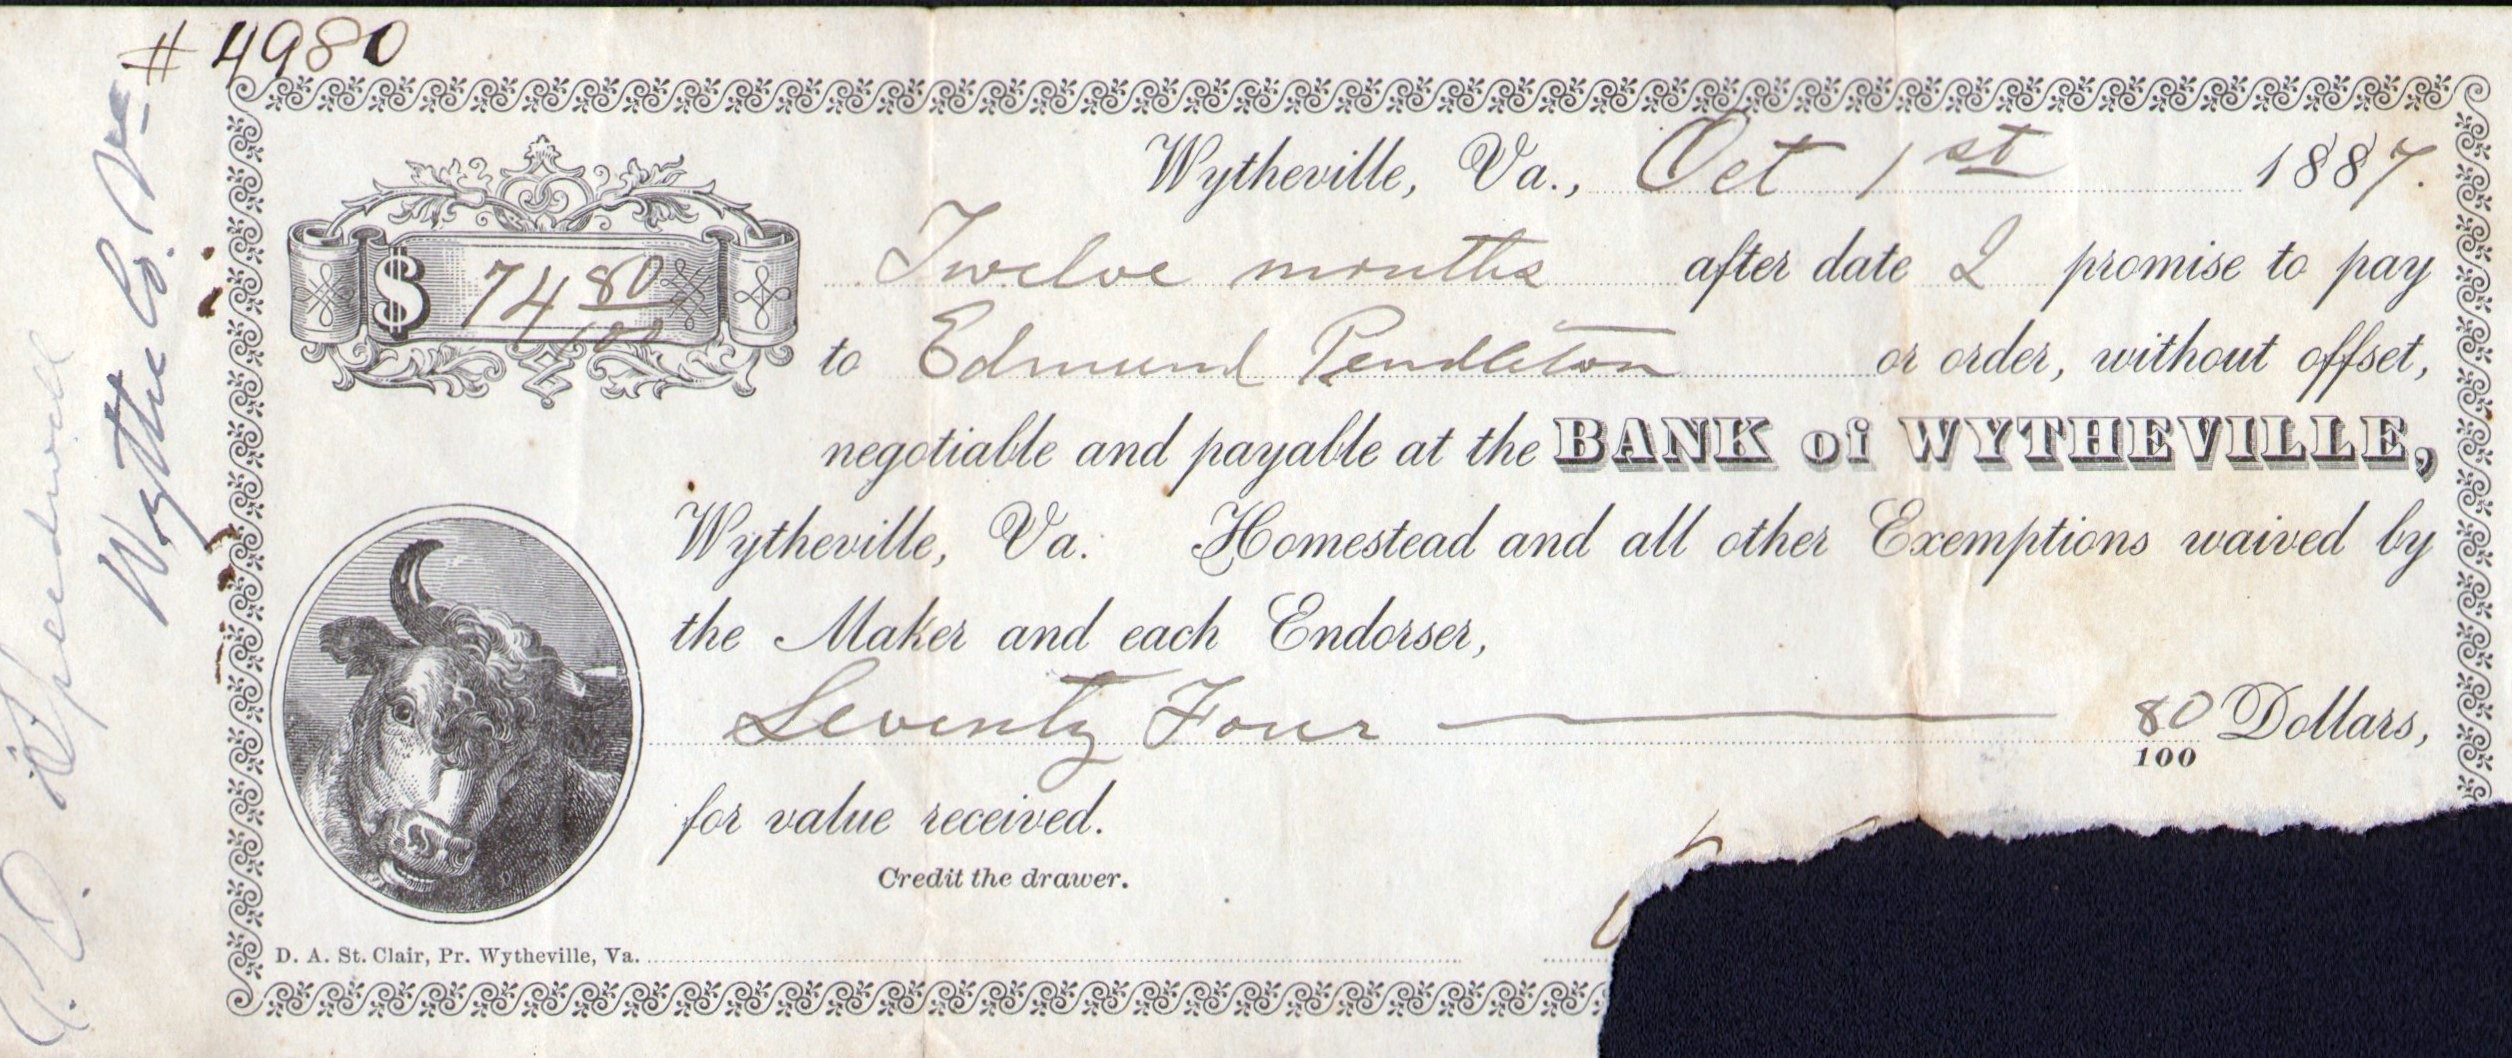 # 4980
Wythe Co. Va
P.O. Speedwell
Wytheville, Va., Oct 1st 1887.
$ 74 80/100
Twelve months after date I promise to pay
to Edmund Pendleton or order, without offset,
negotiable and payable at the BANK of WYTHEVILLE,
Wytheville, Va. Homestead and all other Exemptions waived by
the Maker and each Endorser,
Seventy Four 80/100 Dollars,
for value received.
Credit the drawer.
D. A. St. Clair, Pr. Wytheville, Va.